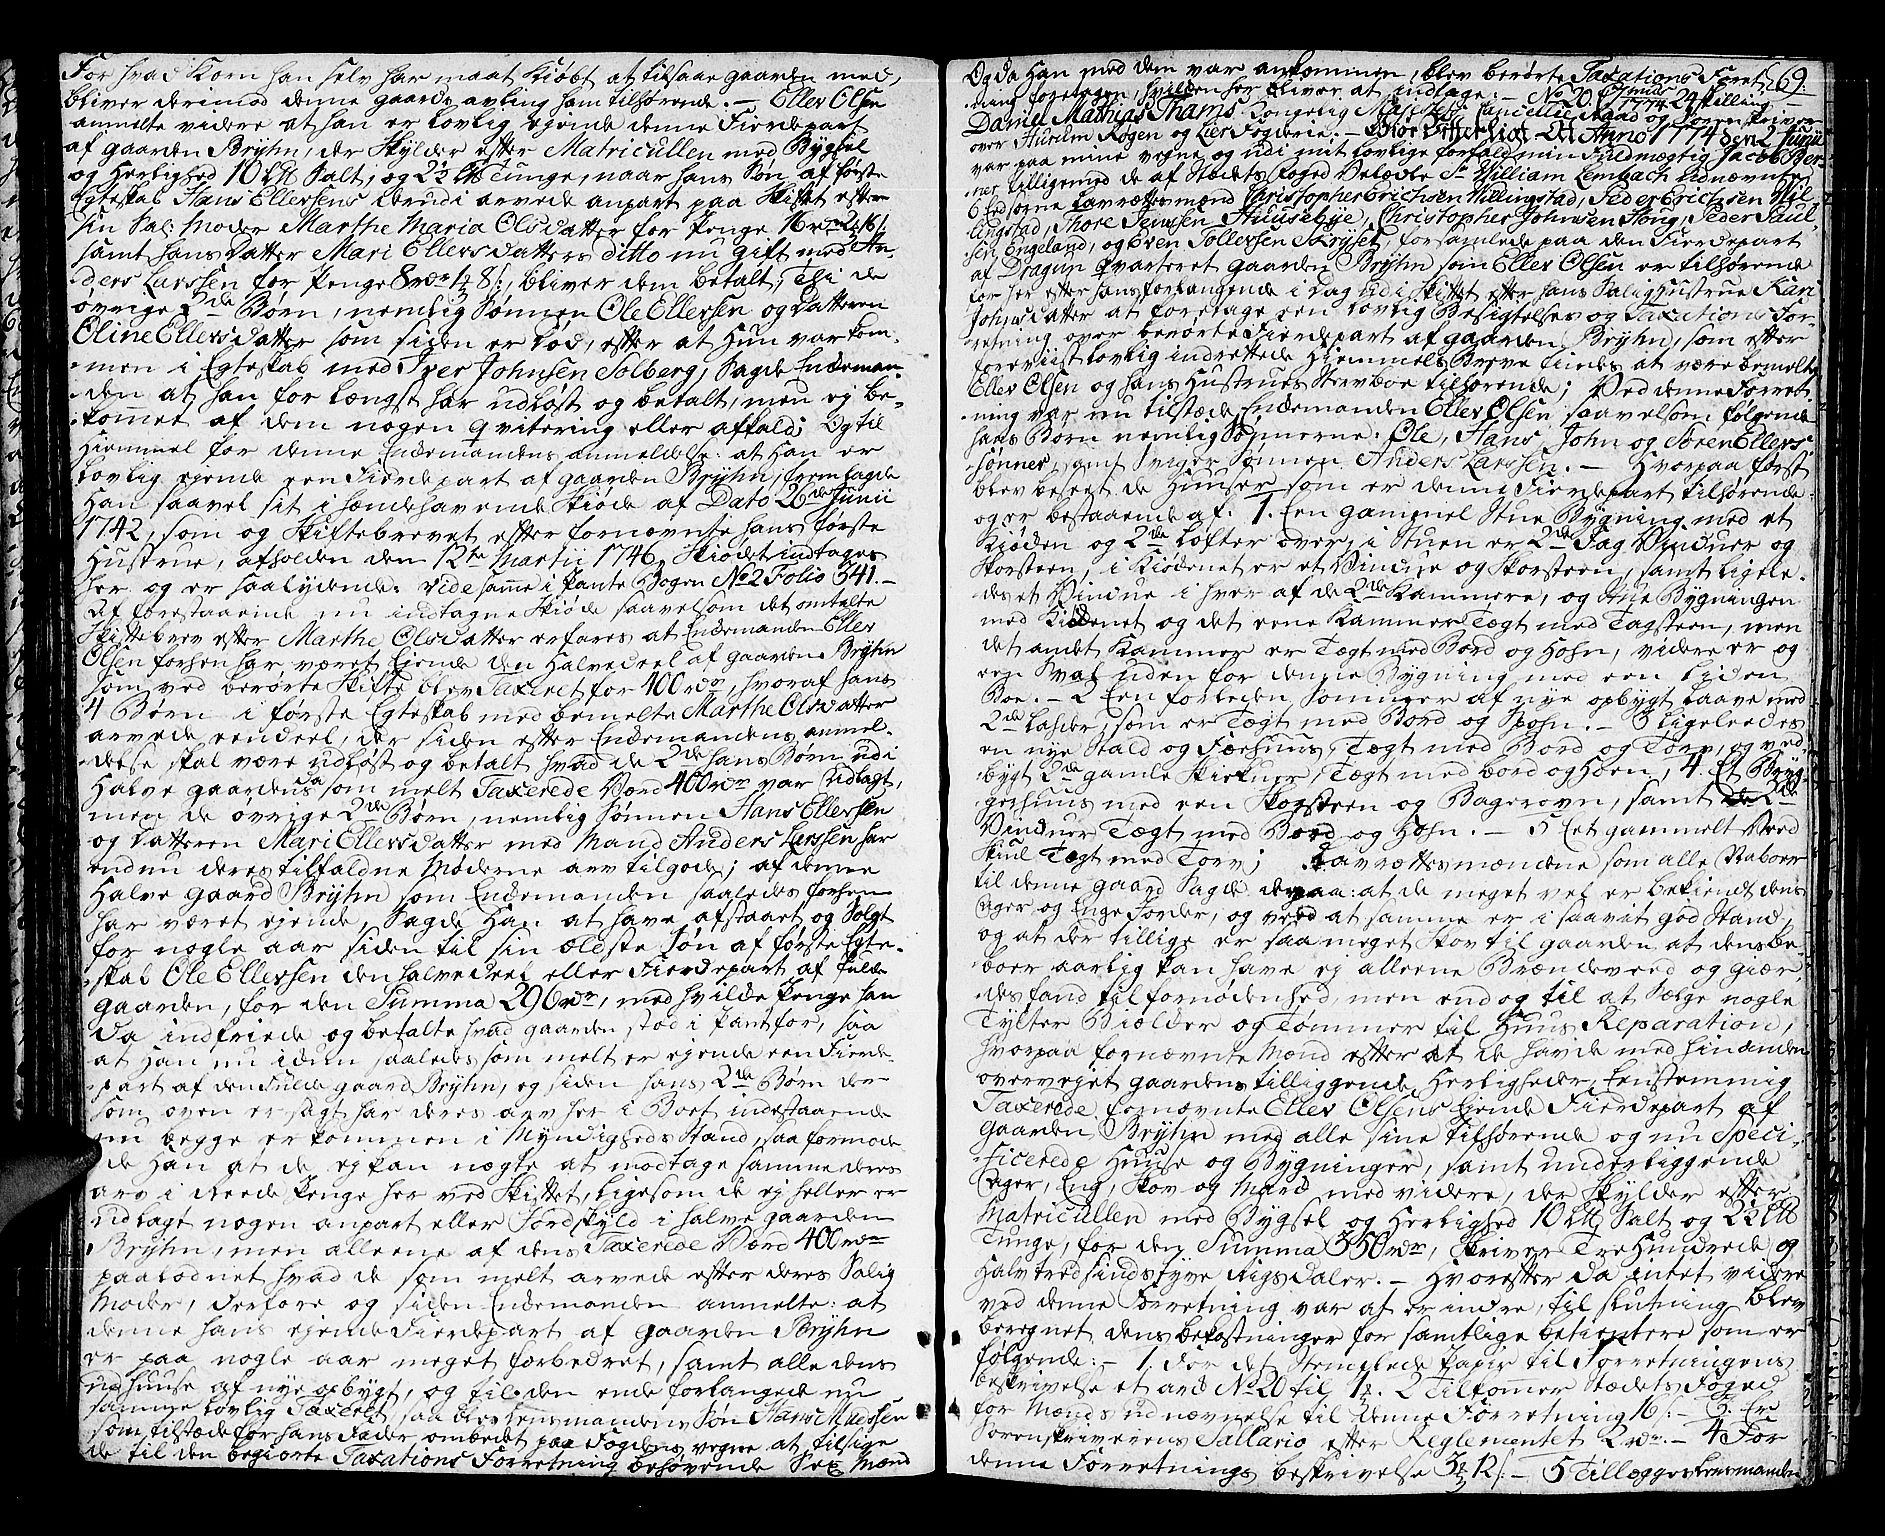 For hvad Korn han selv har maat kiöbt at tilsaae gaarden med,
bliver derimod denne gaards avling ham tilhörende. — Eller Olsen
anmelte videre at han er lovlig ejende denne Fierdepart
af gaarden Bryhn, der skylder efter Matricullen med Bygsel
og Herlighed 10 Lb Salt, og 2½ Lb Tunge, naar hans Sön af förste
Egteskab Hans Ellersens derudi arvede anpart paa Skiftet efter
sin Sal: Moder Marthe Maria Olsdatter for Penge 16 rdr 2 16 s
samt hans Datter Mari Ellersdatters ditto nu gift med An-
ders Larssen for Penge 8 rdr 1 8 s:, bliver dem betalt, Thi de
övrige 2de Börn, nemlig Sönnen Ole Ellersen og Datteren
Eline Ellersdatter som siden er död, efter at Hun var kom-
men i Egteskab med Iver Johnsen Solberg, Sagde Enckeman-
den at han for længst har udlöst og betalt, men ej be-
kommet af dem nogen qvitering eller afkald; Og til
Hiemmel for denne Enckemandens anmeldelse: at Han er
lovlig ejende een Fierdepart af gaarden Bryhn, fremlagde
Han saavel sit i hændehavende Skiöde af Dato 26de Junii
1742, som og Skiftebrevet efter fornævnte hans förste
Hustrue, afholden den 12te Martii 1746, Skiödet indtages
her og er saalydende: vide samme i Pante Bogen No 2 Folio 341. —
Af forestaaende nu indtagne Skiöde saavelsom det omtalte
Skiftebrev efter Marthe Olsdatter erfares at Enckemanden Eller
Olsen forhen har været Ejende den Halvedeel af gaarden Bryhn
som ved berörte Skifte blev Taxeret for 400 rdr, hvoraf hans
4 Börn i förste Egteskab med bemelte Marthe Olsdatter
arvede eendeel, der siden efter Enckemandens anmel-
delse skal være udlöst og betalt hvad de 2de hans Börn udi
Halve gaardens da som melt Taxerede Værd 400 rdr var udlagt,
men de övrige 2de Börn, nemlig Sönnen Hans Ellersen
og Datteren Mari Ellersdatter med Mand Anders Larssen har
endnu deres tilfaldne Möderne arv tilgode; af denne
Halve gaard Bryhn som Enckemanden saaledes forhen
har været ejende, Sagde Han at have afstaaet og Solgt
for nogle aar siden til sin ældste Sön af förste Egte-
skab Ole Ellersen den halvedeel eller Fierdepart af fulde
gaarden, for den Summa 296 rdr, med hvilke Penge han
da indfriede og betalte hvad gaarden stod i Pant for, saa
at Han nu idun saaledes som melt er ejende een Fierde-
part af den Fulde gaard Bryhn, og siden hans 2de Börn der
som oven er sagt har deres arv her i Boet indestaaende
nu begge er kommen i Myndigheds Stand, saa formode-
de Han at de ej kan nægte at modtage samme deres
arv i reede Penge her ved Skiftet, ligesom de ej heller er
udlagt nogen anpart eller Jordskyld i halve gaarden
Bryhn, men alleene af dens Taxerede Værd 400 rdr
paalodnet hvad de som melt arvede efter deres Salig
Moder, derfore og siden Enckemanden anmelte: at
denne hans ejende Fierdepart af gaarden Bryhn
er paa nogle aar meget forbedret, samt alle dens
udhuuse af nye opbygt, og til den ende forlangede nu
samme lovlig Taxeret, saa blev Lensmandens Sön Hans Madssen
som tilstæde for hans Fader ombedt paa Fogdens vegne at tilsige
de til den begierte Taxations Forretning behövende Sex Mænd
69.
Og da Han med dem var ankommen, blev berörte Taxations Foret-
ning foretagen, hvilken her bliver at indtage: — No 20. 1774 24 Skilling —
Daniel Mathias Thams Kongelig Mayestets Cancellie Raad og Sorenskriver
over Hurum Rögen og Lier Fogderie. — Giör Vitterligt At Anno 1774 den 2 Junii
var paa mine vegne og udi mit lovlige forfald min Fuldmægtig Jacob Ber-
ner tilligemed de af Stædets Foged Velædle Sr William Lembach udnævnte
6 Edsorne Lavrettesmænd Christopher Erichsen Villingstad, Peder Erichsen Vil-
lingstad, Thore Jenssen Huusebye, Christopher Johnsen Hong, Peder Paul-
sen Engeland, og Even Tollefsen Kryset, forsamlede paa den Fierdepart
af Dragun qvarteret gaarden Bryhn som Eller Olsen er tilhörende
for her efter hans forlangende i dag udi skiftet efter hans Salig Hustrue Kari
Johnsdatter at foretage een lovlig Besigtelses og Taxations For-
retning over berörte Fierdepart af gaarden Bryhn, som efter
foreviist lovlig indrettede Hiemmels Breve findes at være bemelte
Eller Olsen og hans Hustrues Stervboe tilhörende; Ved denne Forret-
ning var nu tilstæde Enckemanden Eller Olsen saavelsom fölgende
hans Börn nemlig Sönnerne: Ole, Hans, John og Sören Ellers-
sönner, samt Sviger Sönnen Anders Larssen. — Hvorpaa först
blev beseet de Huuser som er denne Fierdepart tilhörende
og er bestaaende af: 1. Een gammel Stue Bygning med et
Kiöcken og 2de Lofter over, i Stuen er 2de Fag Vinduer og
Skorsteen, i Kiöckenet er et Vindue og Skorsteen, samt ligele-
des et Vindue i hver af de 2de Kammere, og Stue Bygningen
med Kiöckenet og det eene Kammer Tægt med Tagsteen, men
det andet Kammer er Tægt med Bord og Hohn, videre er og
een Sval uden for denne Bygning med een liden
Boe. — 2 Een forleden Sommer af nye opbygt Laave med
2de Lasier, som er Tægt med Bord og Spohn. — 3 Ligeledes
en nye Stald og Fæehuus, Tægt med Bord og Törv, og ved-
bygt 2de gamle Skiekuer, Tægt med bord og Hoen, 4. Et Bryg-
gerhuus med een Skogsteen og Bagerovn, samt 2de
Vinduer Tægt med Bord og Hohn. — 5 Eet gammelt Veed
Skiul Tægt med Torv; Lavrettesmændene som alle Naboer
til denne gaard Sagde derpaa: at de meget vel er bekiendt dens
Ager og Enge Jorder, og veed at samme er i saavit god Stand,
og at der tillige er saa meget Skov til gaarden at dens be-
boer aarlig kan have ej alleene Brændeveed og giær-
desfand til fornödenhed, men end og til at Sælge nogle
Tylter Biælcker og Tömmer til Huus Reparation,
hvorpaa fornævnte Mænd efter at de havde med hinanden
overvejet gaardens tilliggende Herligheder, Eenstemmig
Taxerede fornævnte Eller Olsens Ejende Fierdepart af
gaarden Bryhn med alle sine tilhörende og nu Speci-
ficerede Huuse og Bygninger, samt underliggende
Ager, Eng, Skov og Marck med videre, der skylder efter
Matricullen med Bygsel og Herlighed 10 Lb Salt og 2½ Lb
Tunge, for den Summa 350 rdr, skriver Tre Hundrede og
Halvtredsindstyve Rigsdaler. — Hvorefter da intet videre
ved denne Forretning var at erindre, til slutning blev
beregnet dens bekostninger for samtlige betientere som er
fölgende: — 1. For det Stemplede Papir til Forretningens
beskrivelse et ark No 20 til 1. 2 Tilkommer Stædets Foged
for Mænds udnævnelse til denne Forretning 16 s: — 3: Er
Sorenskriverens Sallario efter Reglementet 2 rdr. — 4 For
denne Forretnings beskrivelse 3 12 s: — 5 Tillægges Lensmanden